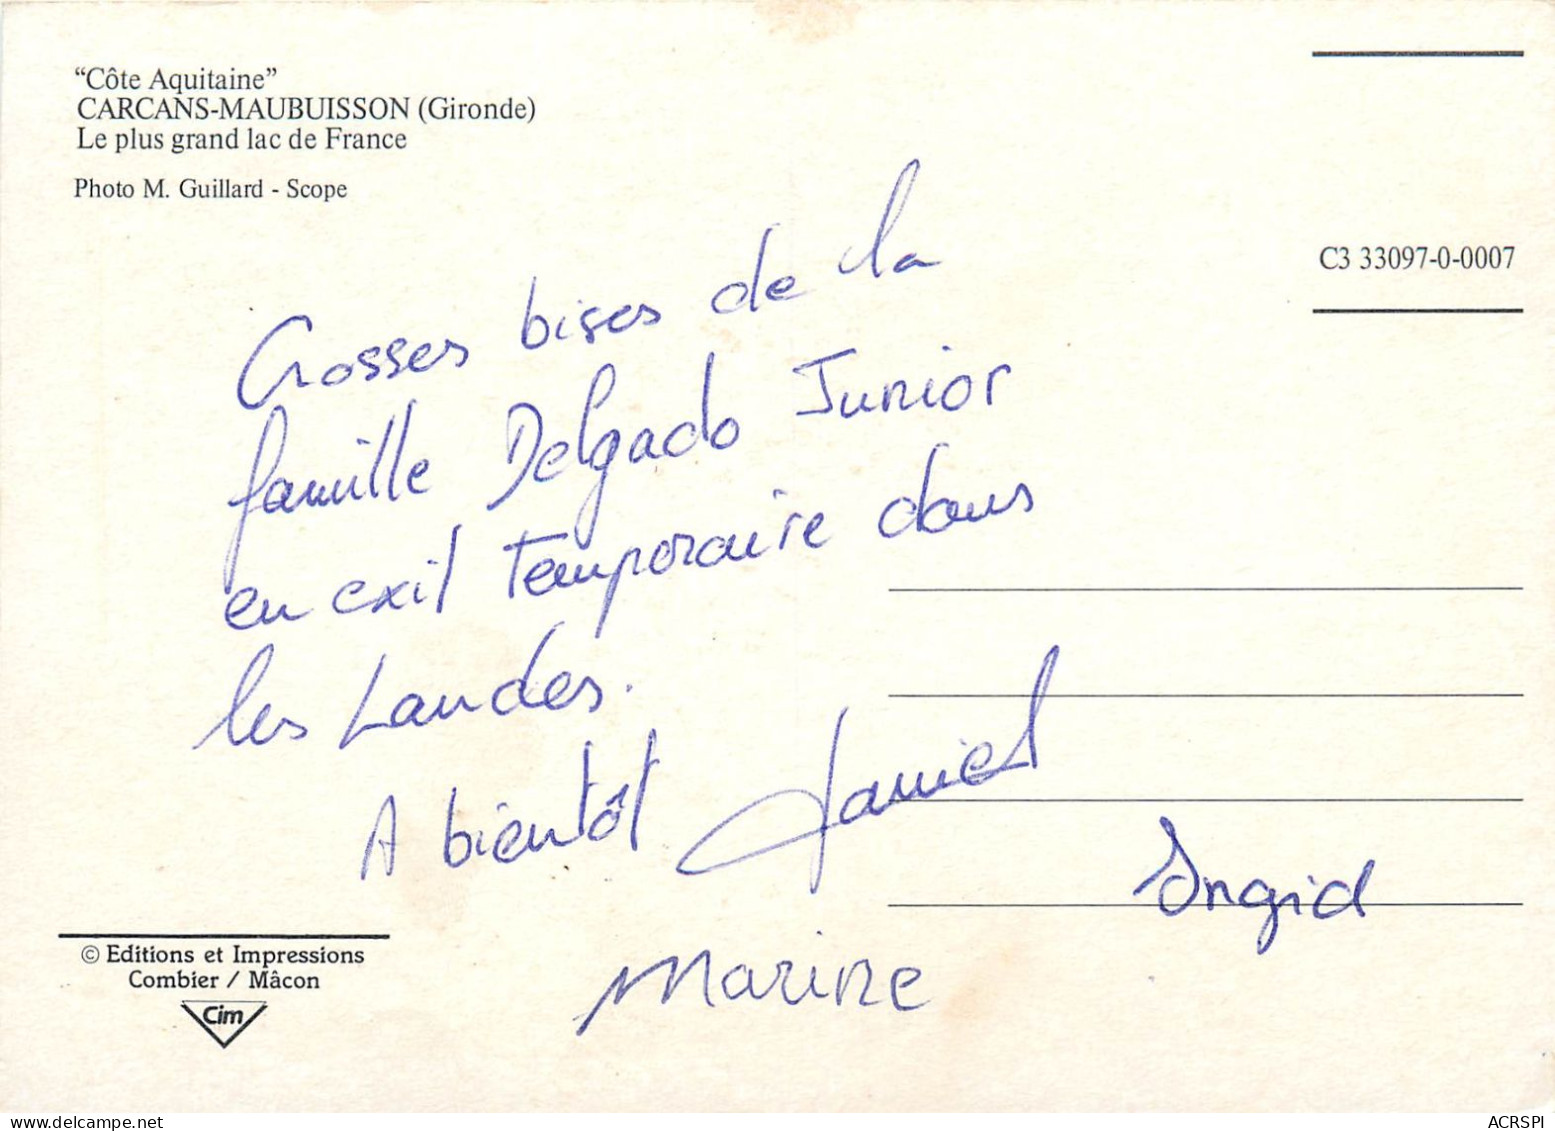 “Côte Aquitaine”
CARCANS-MAUBUISSON (Gironde)
Le plus grand lac de France
Photo M. Guillard - Scope
C3 33097-0-0007
Grosses bises de la
famille Delgado Junior
en exil temporaire dans
les Landes.
A bientôt Daniel
Ingrid
Marine
© Editions et Impressions
Combier / Mâcon
Cim
ACRSPI